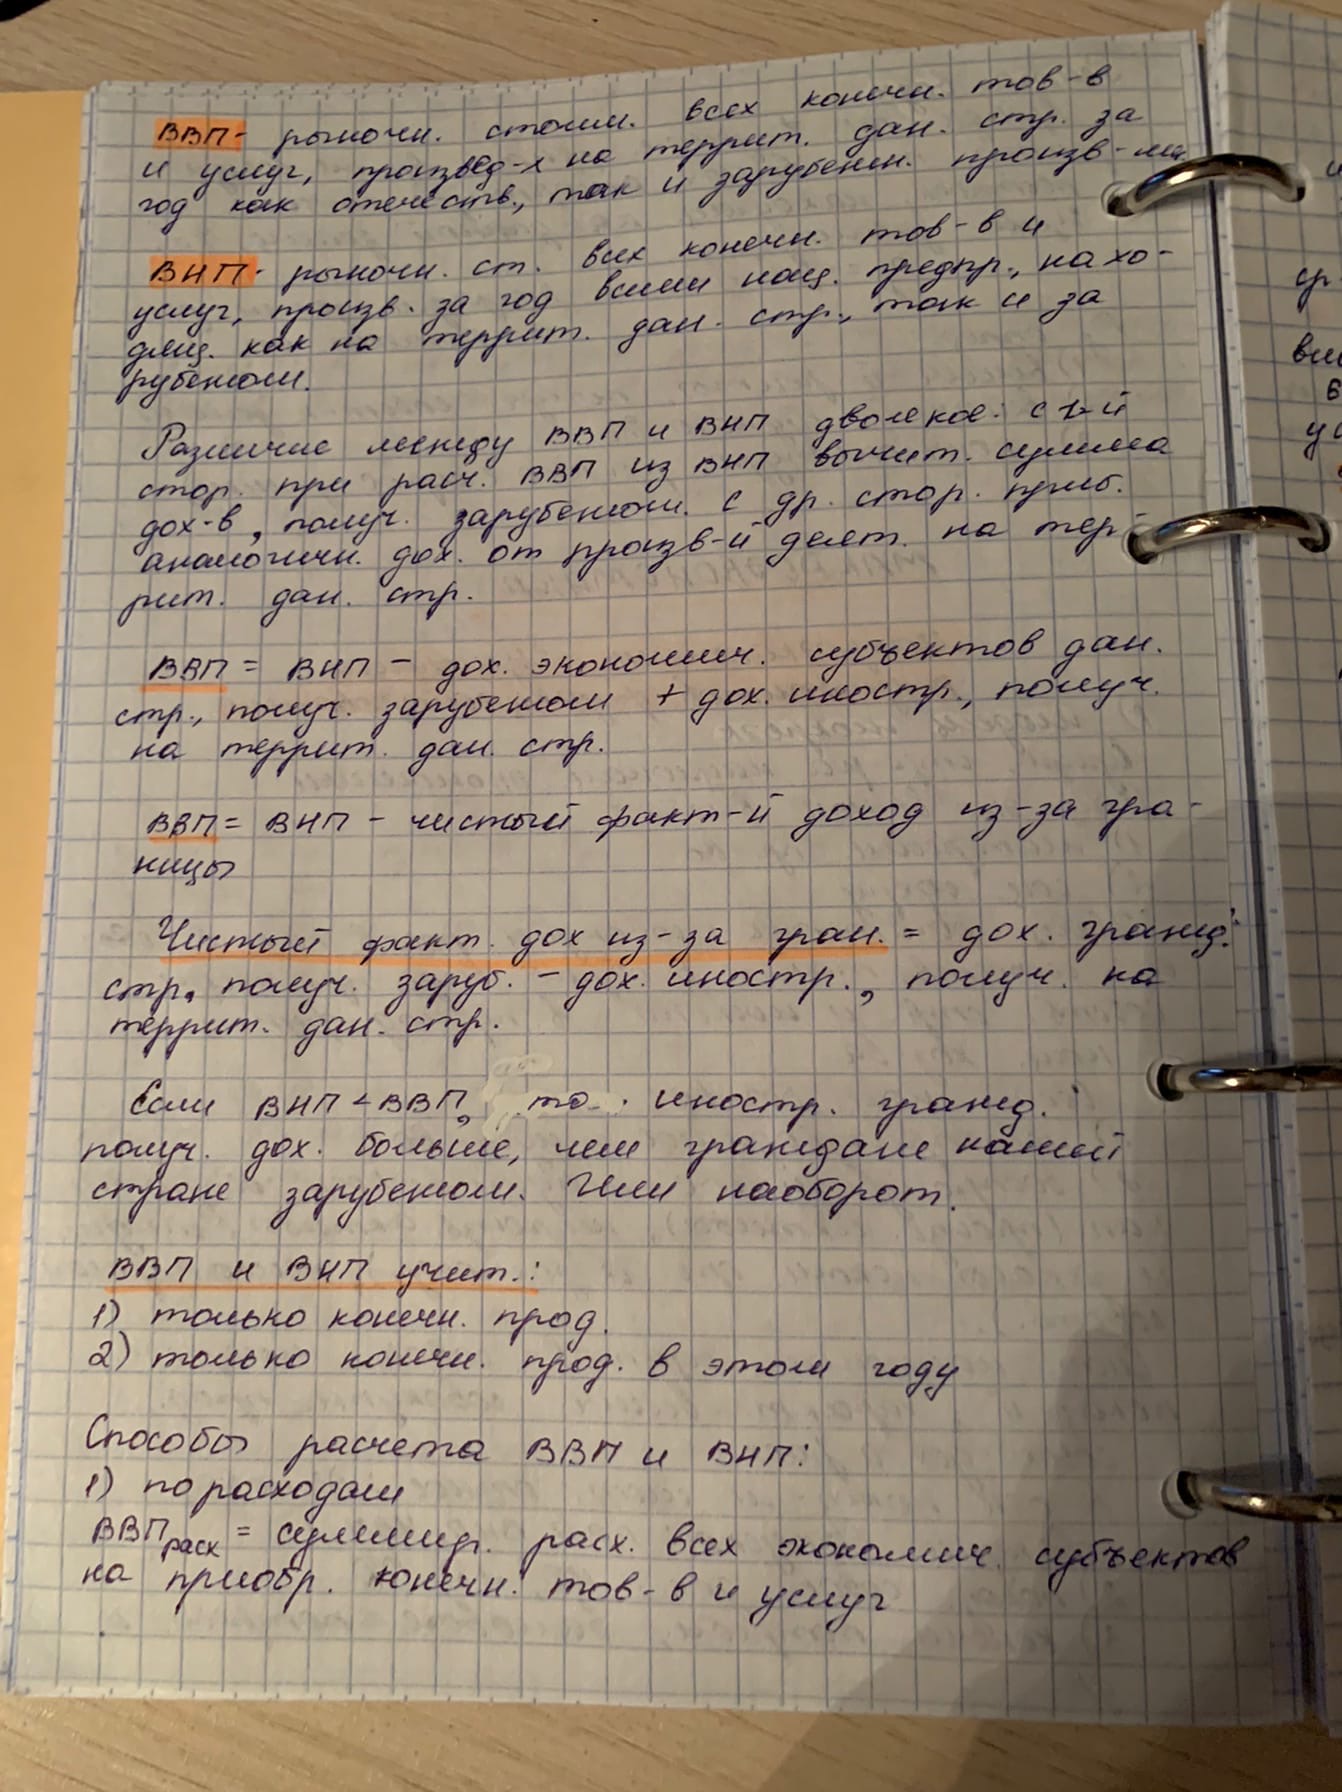 ВВП- рыночн. стоим. всех конечн. тов-в
и услуг, произвед-х на террит. дан. стр. за
год как отечеств., так и зарубежн. произв-ми
ВНП- рыночн. ст. всех конечн. тов-в и
услуг, произв. за год всеми нац. предпр., нахо-
дящ. как на террит. дан. стр., так и за
рубежом.
Различие между ВВП и ВНП двоякое: с 1-й
стор. при расч. ВВП из ВНП вычит. сумма
дох-в, получ. зарубежом. с др. стор. приб.
аналогичн. дох. от произв-й деят. на тер-
рит. дан. стр.
ВВП = ВНП - дох. экономич. субъектов дан.
стр., получ. зарубежом + дох. иностр., получ.
на террит. дан. стр.
ВВП = ВНП - чистый факт-й доход из-за гра-
ницы
Чистый факт. дох из-за гран. = дох. гражд.
стр., получ. заруб. - дох. иностр., получ. на
террит. дан. стр.
Если ВНП < ВВП, то иностр. гражд.
получ. дох. больше, чем граждане нашей
стране зарубежом. Или наоборот.
ВВП и ВНП учит.:
1) только конечн. прод.
2) только конечн. прод. в этом году
Способы расчета ВВП и ВНП:
1) по расходам
ВВПрасх = суммир. расх. всех экономич. субъектов
на приобр. конечн. тов-в и услуг
ср
вы
в